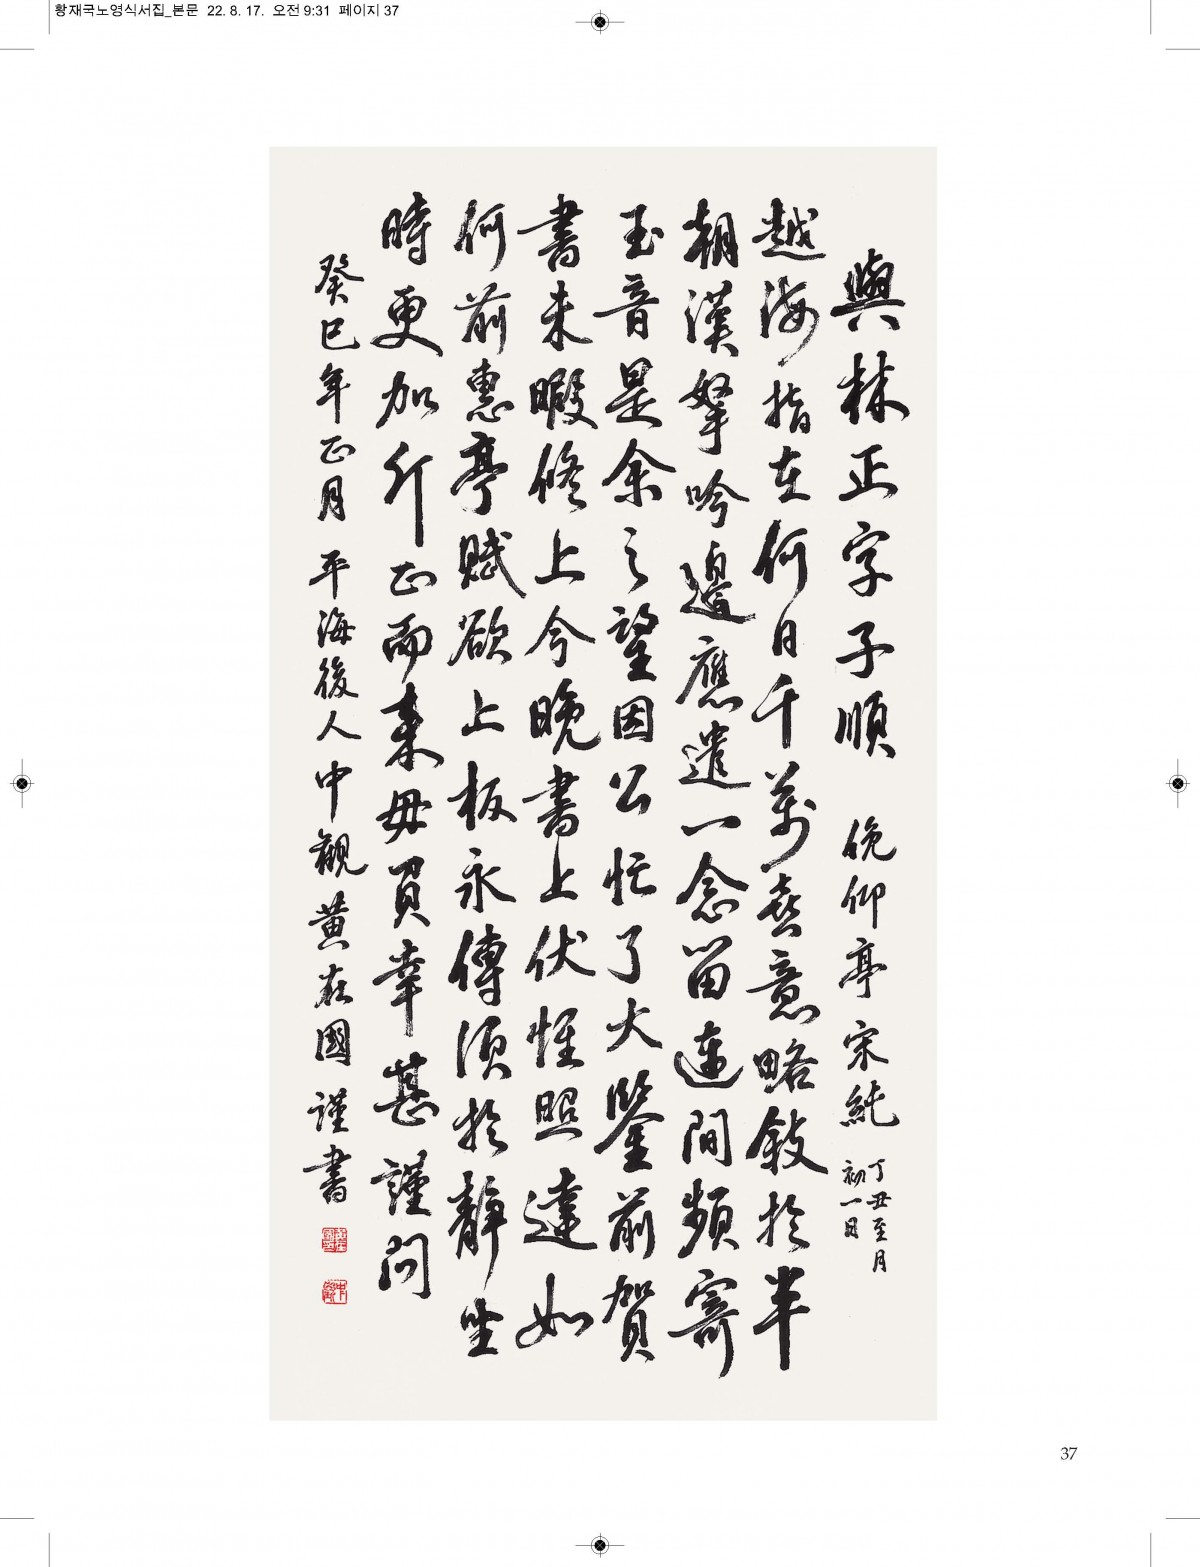 黃재국노영식서집_본문 22. 8. 17. 오전 9:31 페이지 37
與林正字子順 俛仰亭宋純 丁丑至月
初一日
越海指在何日千萬喜意略敍於半
朝漢拏吟邊應遣一念留連間頻寄
玉音是余之望因公忙了火鑒前賀
書未暇修上今晚書上伏惟照達如
何前惠亭賦欲上板永傳須於靜坐
時更加斤正而來毋負幸甚謹問
癸巳年正月 平海後人中觀黃在國謹書
37